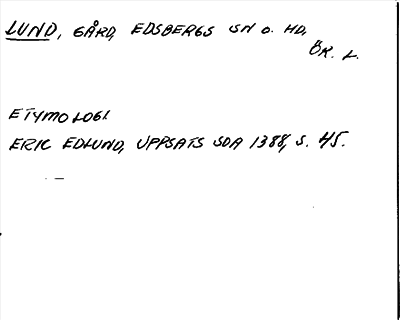 LUND, GÅRD, EDSBERGS SN O. HD,
ÖR. L.
ETYMOLOGI
ERIC EDLUND, UPPSATS SOA 1388, S. 45.